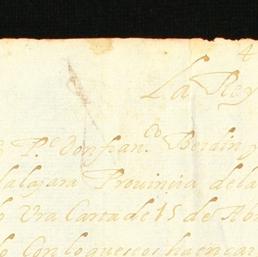 4
La Rey
P.e Don fran.co Berdin y
dalajara Provincia dela
Vra Carta de 15 de Abr
Con lo que se os ha encar